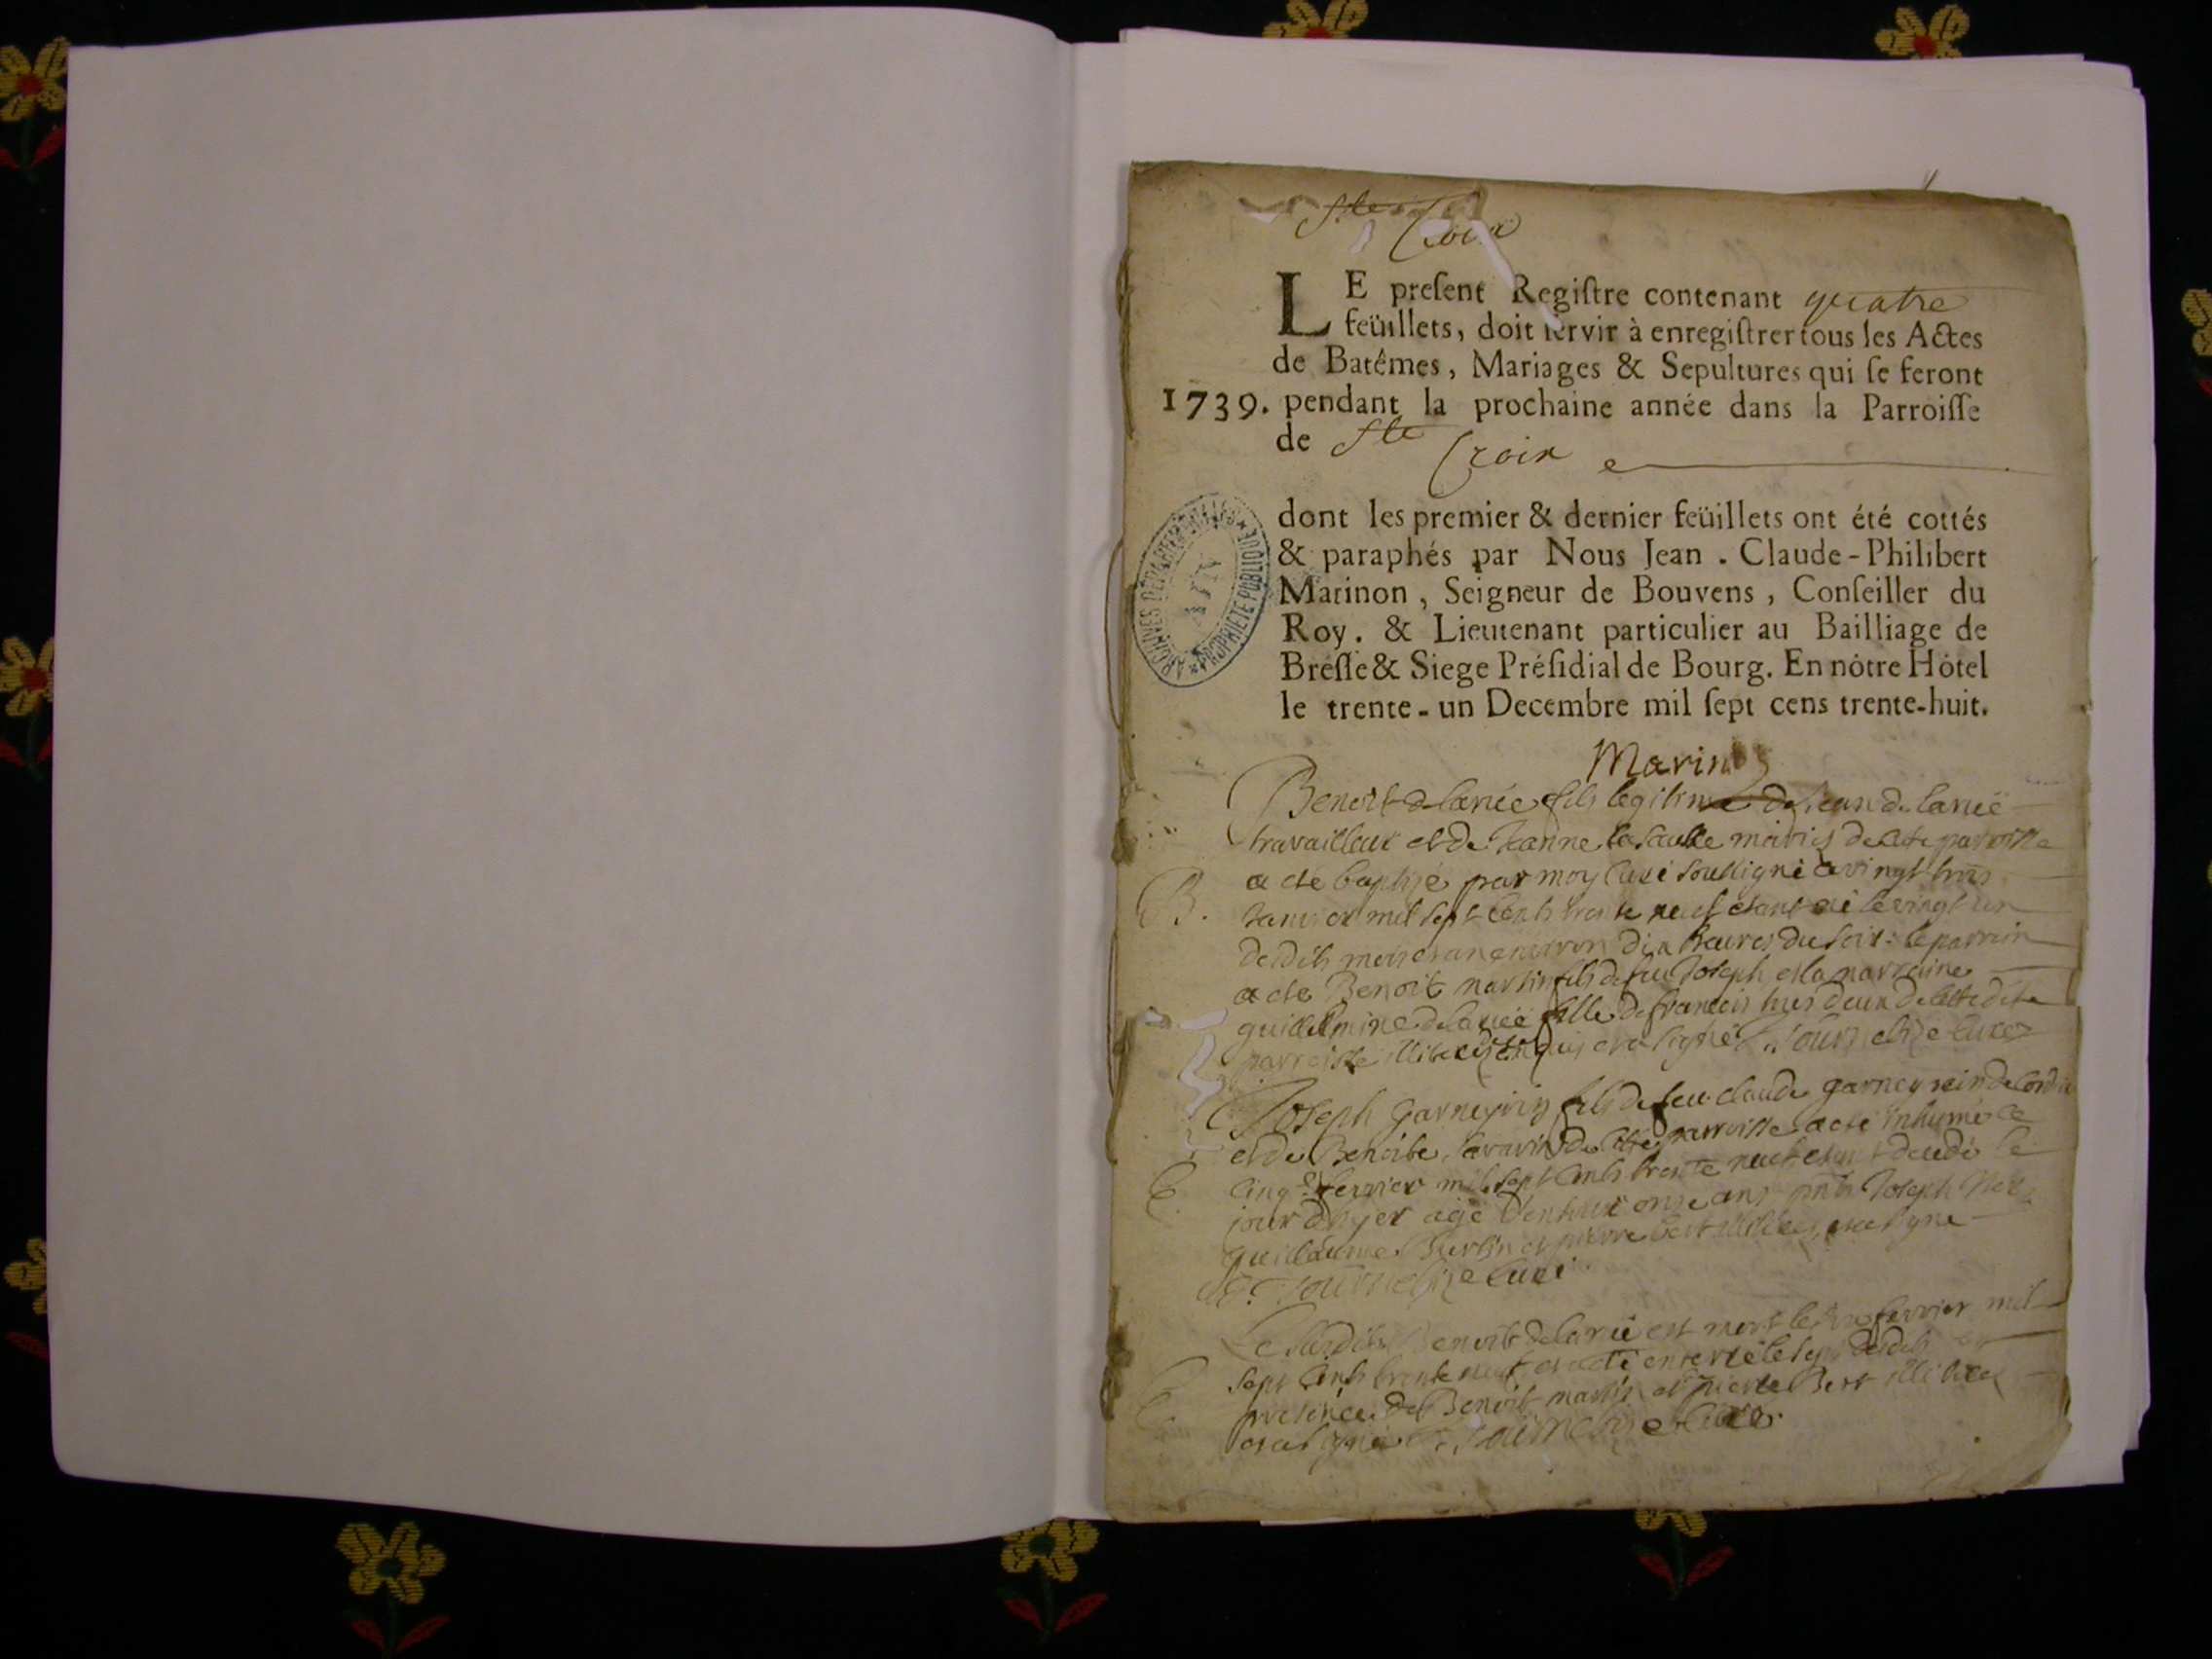 Ste
Croix
LE preſent Regiſtre contenant quatre
feüillets, doit ſervir à enregiſtrer tous les Actes
de Batêmes, Mariages & Sepultures qui ſe feront
1739. pendant la prochaine année dans la Parroiſſe
de Ste Croix
dont les premier & dernier feüillets ont été cottés
& paraphés par Nous Jean . Claude-Philibert
Marinon, Seigneur de Bouvens, Conſeiller du
Roy. & Lieutenant particulier au Bailliage de
Breſſe & Siege Préſidial de Bourg. En nôtre Hôtel
le trente-un Decembre mil ſept cens trente-huit.
ARCHIVES DÉPARTEMENTALES * PROPRIÉTÉ PUBLIQUE * AIN
Benoit fils legitime de Jean
travailleur et de Jeanne mariés de cette parroisse
a eté baptizé par moy curé soussigné vingt trois
B. Janvier mil sept cents trente neuf etant né le vingt un
desdits mois et an environ dix heures du soir: le parrain
a eté Benoit martin fils de feu Joseph et la marraine
guillelmine fille de francois tous deux de cette dite
parroisse et a signé curé
Joseph garneyrin fils de feu claude garneyrin
et de Benoite de cette parroisse a eté inhumé le
cinq fevrier mil sept cents trente neuf etant decedé le
jour d'hyer agé d'environ onze ans Joseph
guillaume et pierre Bert et a signé
curé
Le susdit Benoit est mort le fevrier mil
sept cents trente neuf et a eté enterré le
presence de Benoit martin et pierre Bert
et a signé curé